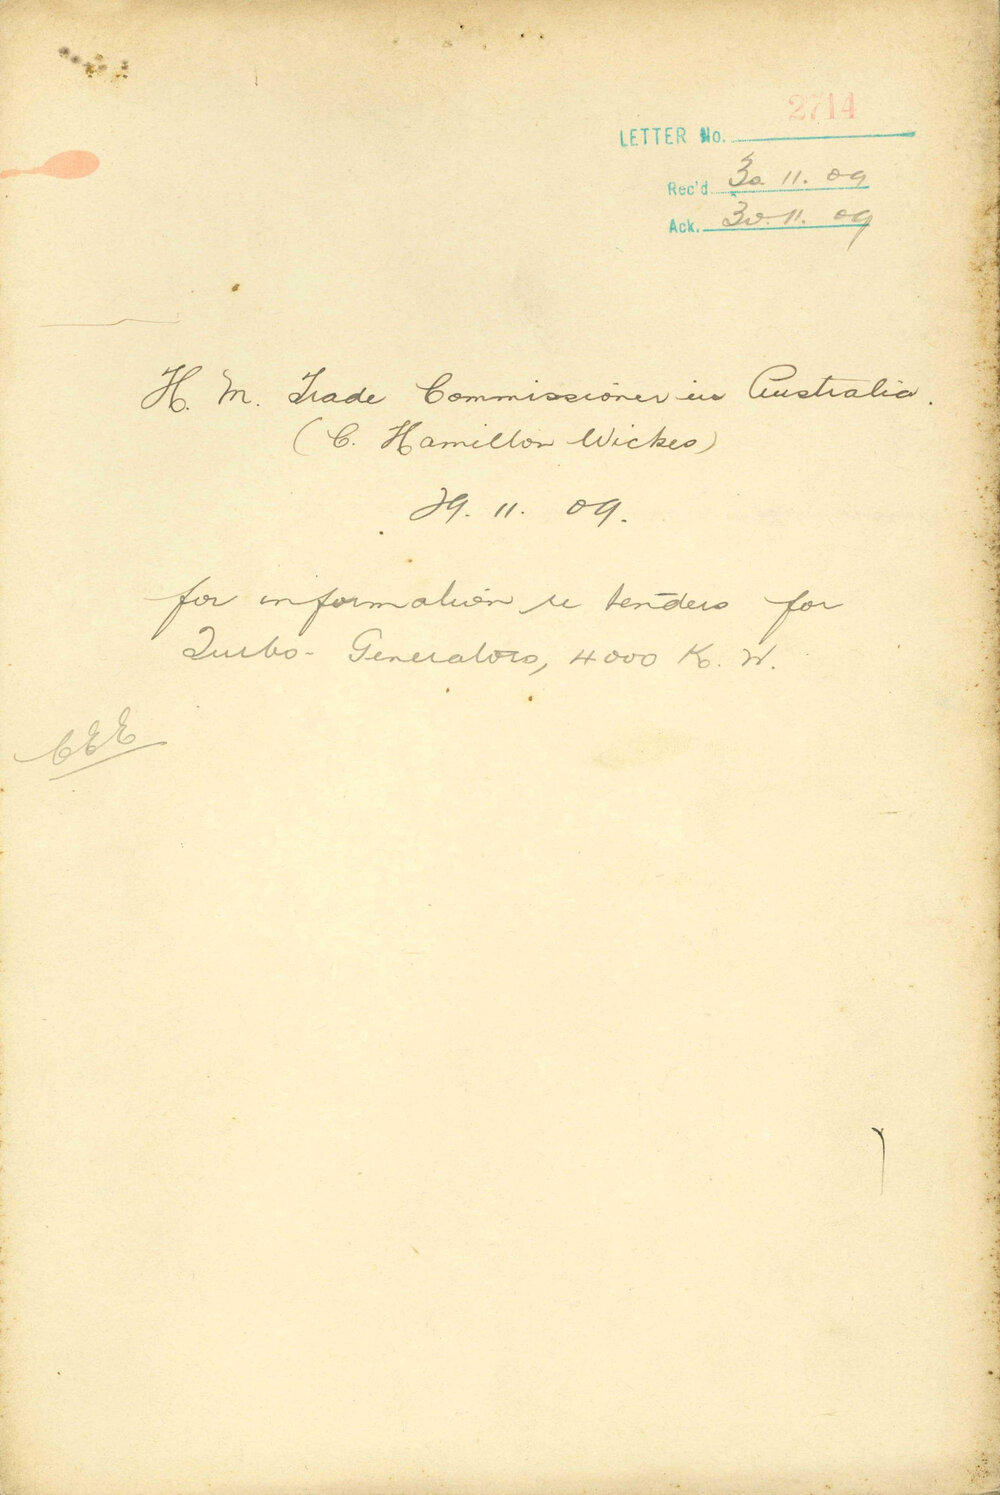 2714
LETTER No.
Rec'd 30 11. 09
Ack. 30. 11. 09
H. M. Trade Commissioner in Australia.
(C. Hamilton Wickes)
29. 11. 09.
for information re tenders for
Turbo-Generators, 4000 K. W.
CEE